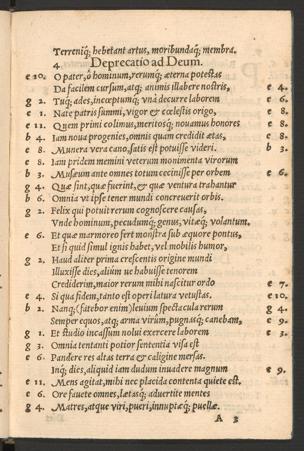 Terreniq; hebetant artus, moribundaq; membra.
4. Deprecatio ad Deum.
e 10. O pater, ô hominum, rerumq; æterna potestas
Da facilem cursum, atq; animis illabere nostris, e 4.
g 2. Tuq; ades, inceptumq; vnà decurre laborem e 6.
e 1. Nate patris summi, vigor & cœlestis origo, e 8.
e 11. Quem primi colimus, meritosq; nouamus honores e 8.
b 4. Iam noua progenies, omnis quam credidit ætas, e 8.
e 8. Munera vera cano, satis est potuisse videri. b 3.
e 8. Iam pridem memini veterum monimenta virorum
b 3. Musæum ante omnes totum cecinisse per orbem e 6.
g 4. Quæ sint, quæ fuerint, & quæ ventura trahantur
b 6. Omnia vt ipse tener mundi concreuerit orbis.
g 2. Felix qui potuit rerum cognoscere causas,
Vnde hominum, pecudumq; genus, vitæq; volantum.
e 6. Et quæ marmoreo fert monstra sub æquore pontus,
Et si quid simul ignis habet, vel mobilis humor,
g 2. Haud aliter prima crescentis origine mundi
Illuxisse dies, aliúm ue habuisse tenorem
Crediderim, maior rerum mihi nascitur ordo e 7.
e 4. Si qua fidem, tanto est operi latura vetustas. e 10.
b 2. Nanq; (fatebor enim) leuium spectacula rerum g 4.
Semper equos, atq; arma virûm, pugnasq; canebam, e 9.
g 1. Et studio incassum volui exercere laborem e 3.
g 3. Omnia tentanti potior sententia visa est
e 6. Pandere res altas terra & caligine mersas.
Inq; dies, aliquid iam dudum inuadere magnum e 9.
e 11. Mens agitat, mihi nec placida contenta quiete est.
e 6. Ore fauete omnes, lætasq; aduertite mentes
g 4. Matres, atque viri, pueri, innuptæq; puellæ.
A 3